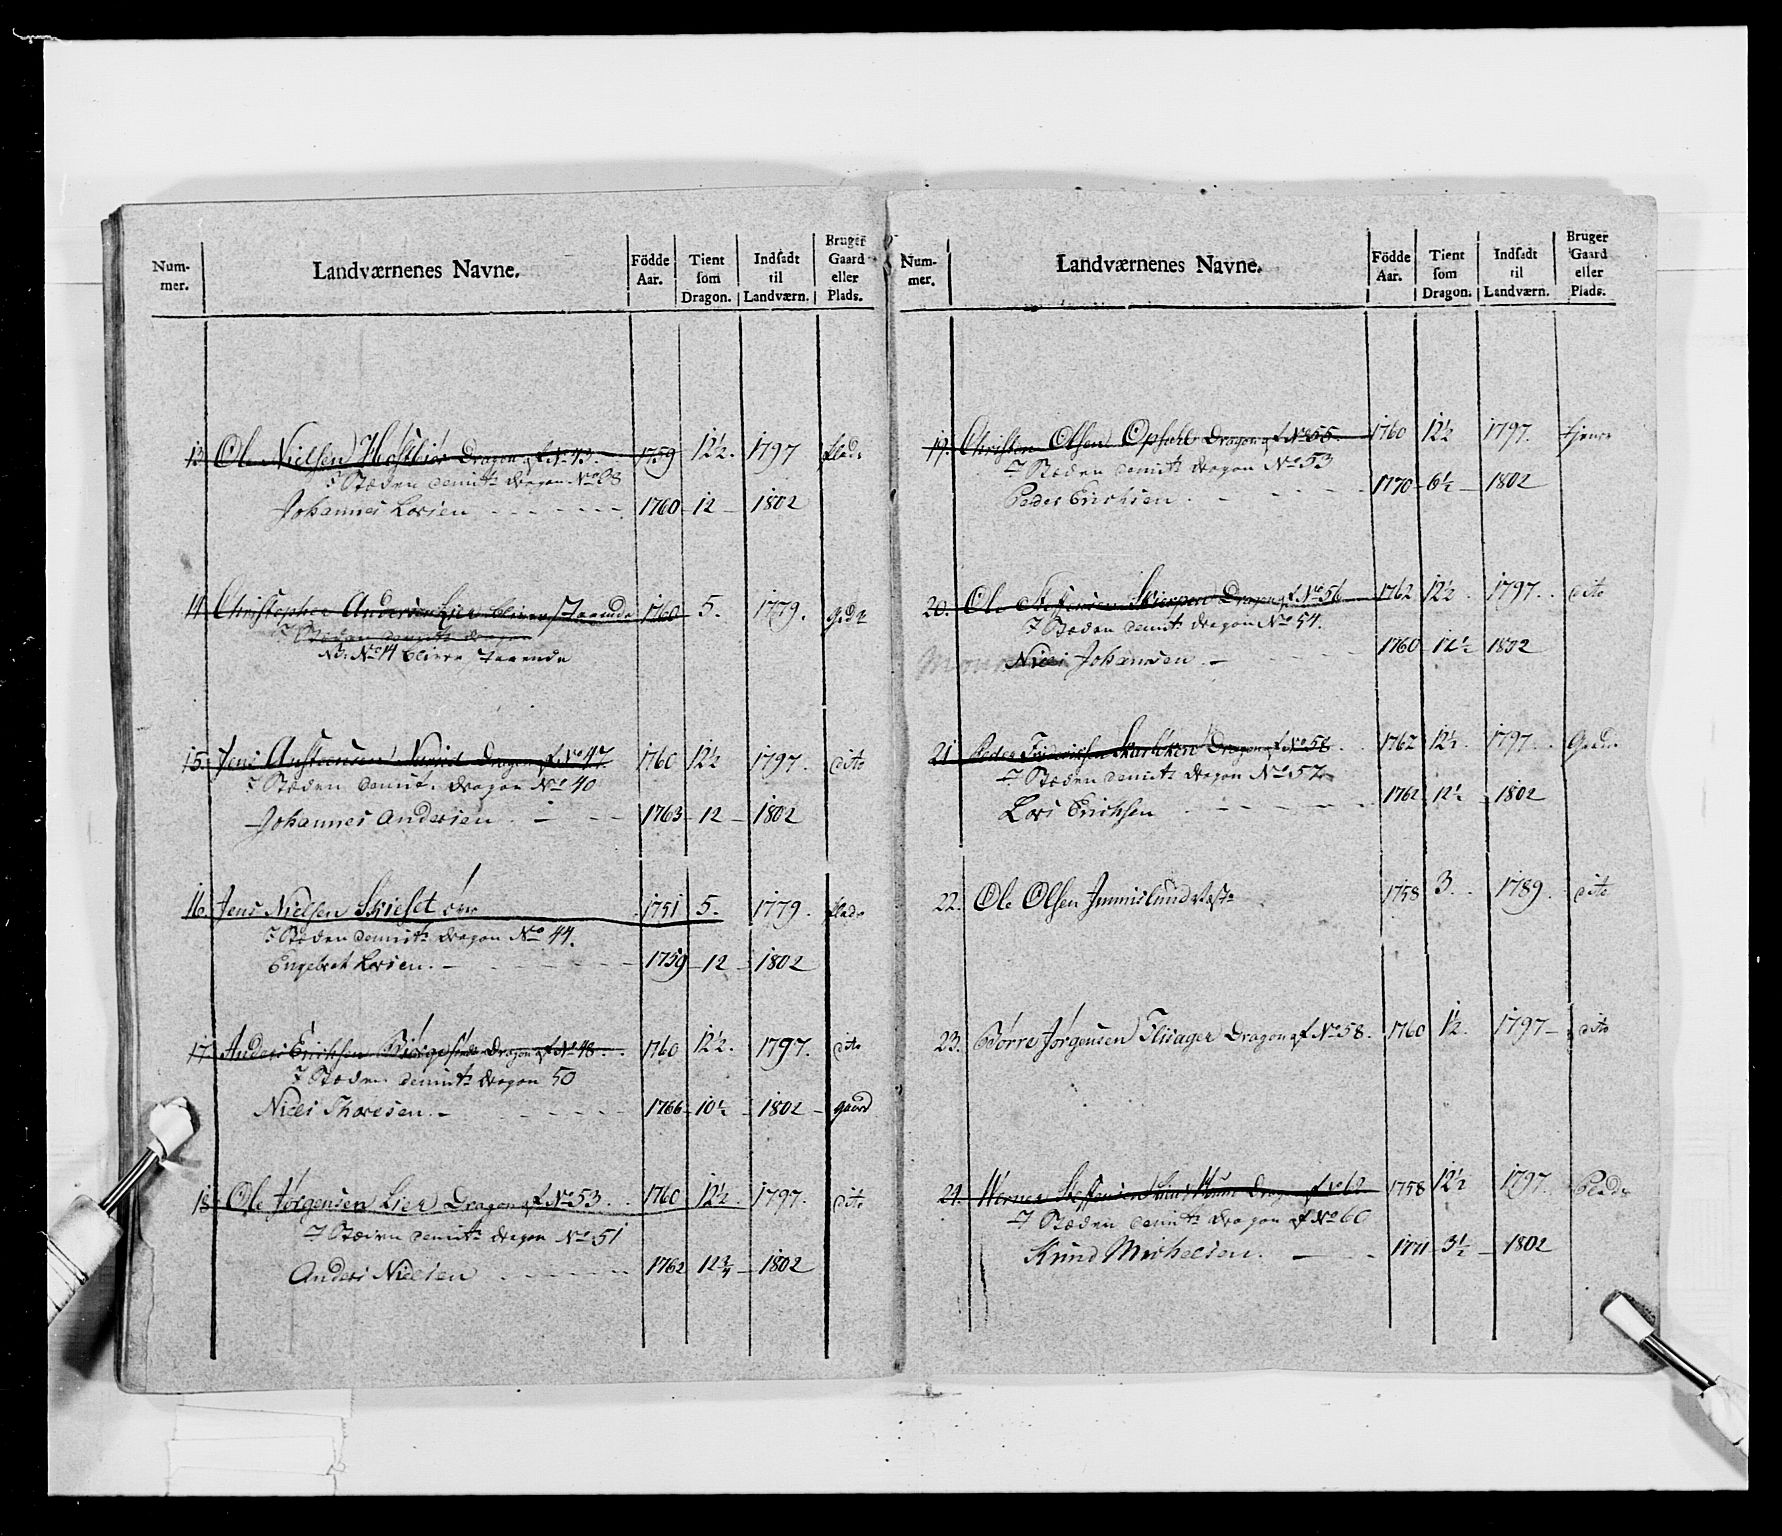 Num-mer.
Landværnenes Navne.
Födde Aar.
Tient som Dragon.
Indsadt til Landværn.
Bruger Gaard eller Plads.
13 Ole Nielsen Dragon af No 43. 1759 12½. 1797
i Stæden demitt: Dragon No 38
Johannes Larsen 1760 12 1802
14 Christopher Andersen Lier bliver staaende 1760 5. 1779.
i Stæden demitt: Dragon
NB. No 14 bliver staaende
15. Jens Dragon af No 47. 1760 12½ 1797. dito
i Stæden demit. Dragon No 40
Johannes Andersen 1763 12 1802
16 Jens Nielsen Skieset 1751 5. 1779.
i Stæden demitt: Dragon No 44.
Engebret Larsen. 1759 12 1802
17 Anders Erichsen Dragon af No 48. 1760 12½. 1797. dito
i Stæden demitt: Dragon 50
Niels Thoresen. 1766 10½ 1802 gaard
18 Ole Jørgensen Lier Dragon af No 53. 1760 12½ 1797. dito
i Stæden demitt: Dragon No 51
Anders Nielsen 1762 12¾ 1802
Num-mer.
Landværnenes Navne.
Födde Aar.
Tient som Dragon.
Indsadt til Landværn.
Bruger Gaard eller Plads.
19. Christen Olsen Opsahl Dragon af No 55. 1760 12½ 1797.
i Stæden demitt: Dragon No 53
Peder Erichsen 1770 6½ 1802
20. Ole Dragon af No 56 1762 12½ 1797. dito
i Stæden demitt: Dragon No 54.
Niels Johannsen 1760 12½ 1802
21 Peder Dragon af No 58 1762 12½. 1797.
i Stæden demitt: Dragon No 57
Lars Erichsen 1762 12½ 1802
22. Ole Olsen 1758 3. 1789. dito
23. Børre Jørgensen Dragon af No 58. 1760 1½. 1797 dito
24. Werner Steffensen 1758 12½ 1797.
i Stæden demitt: Dragon af No 60
Knud Michelsen. 1771 3½ 1802